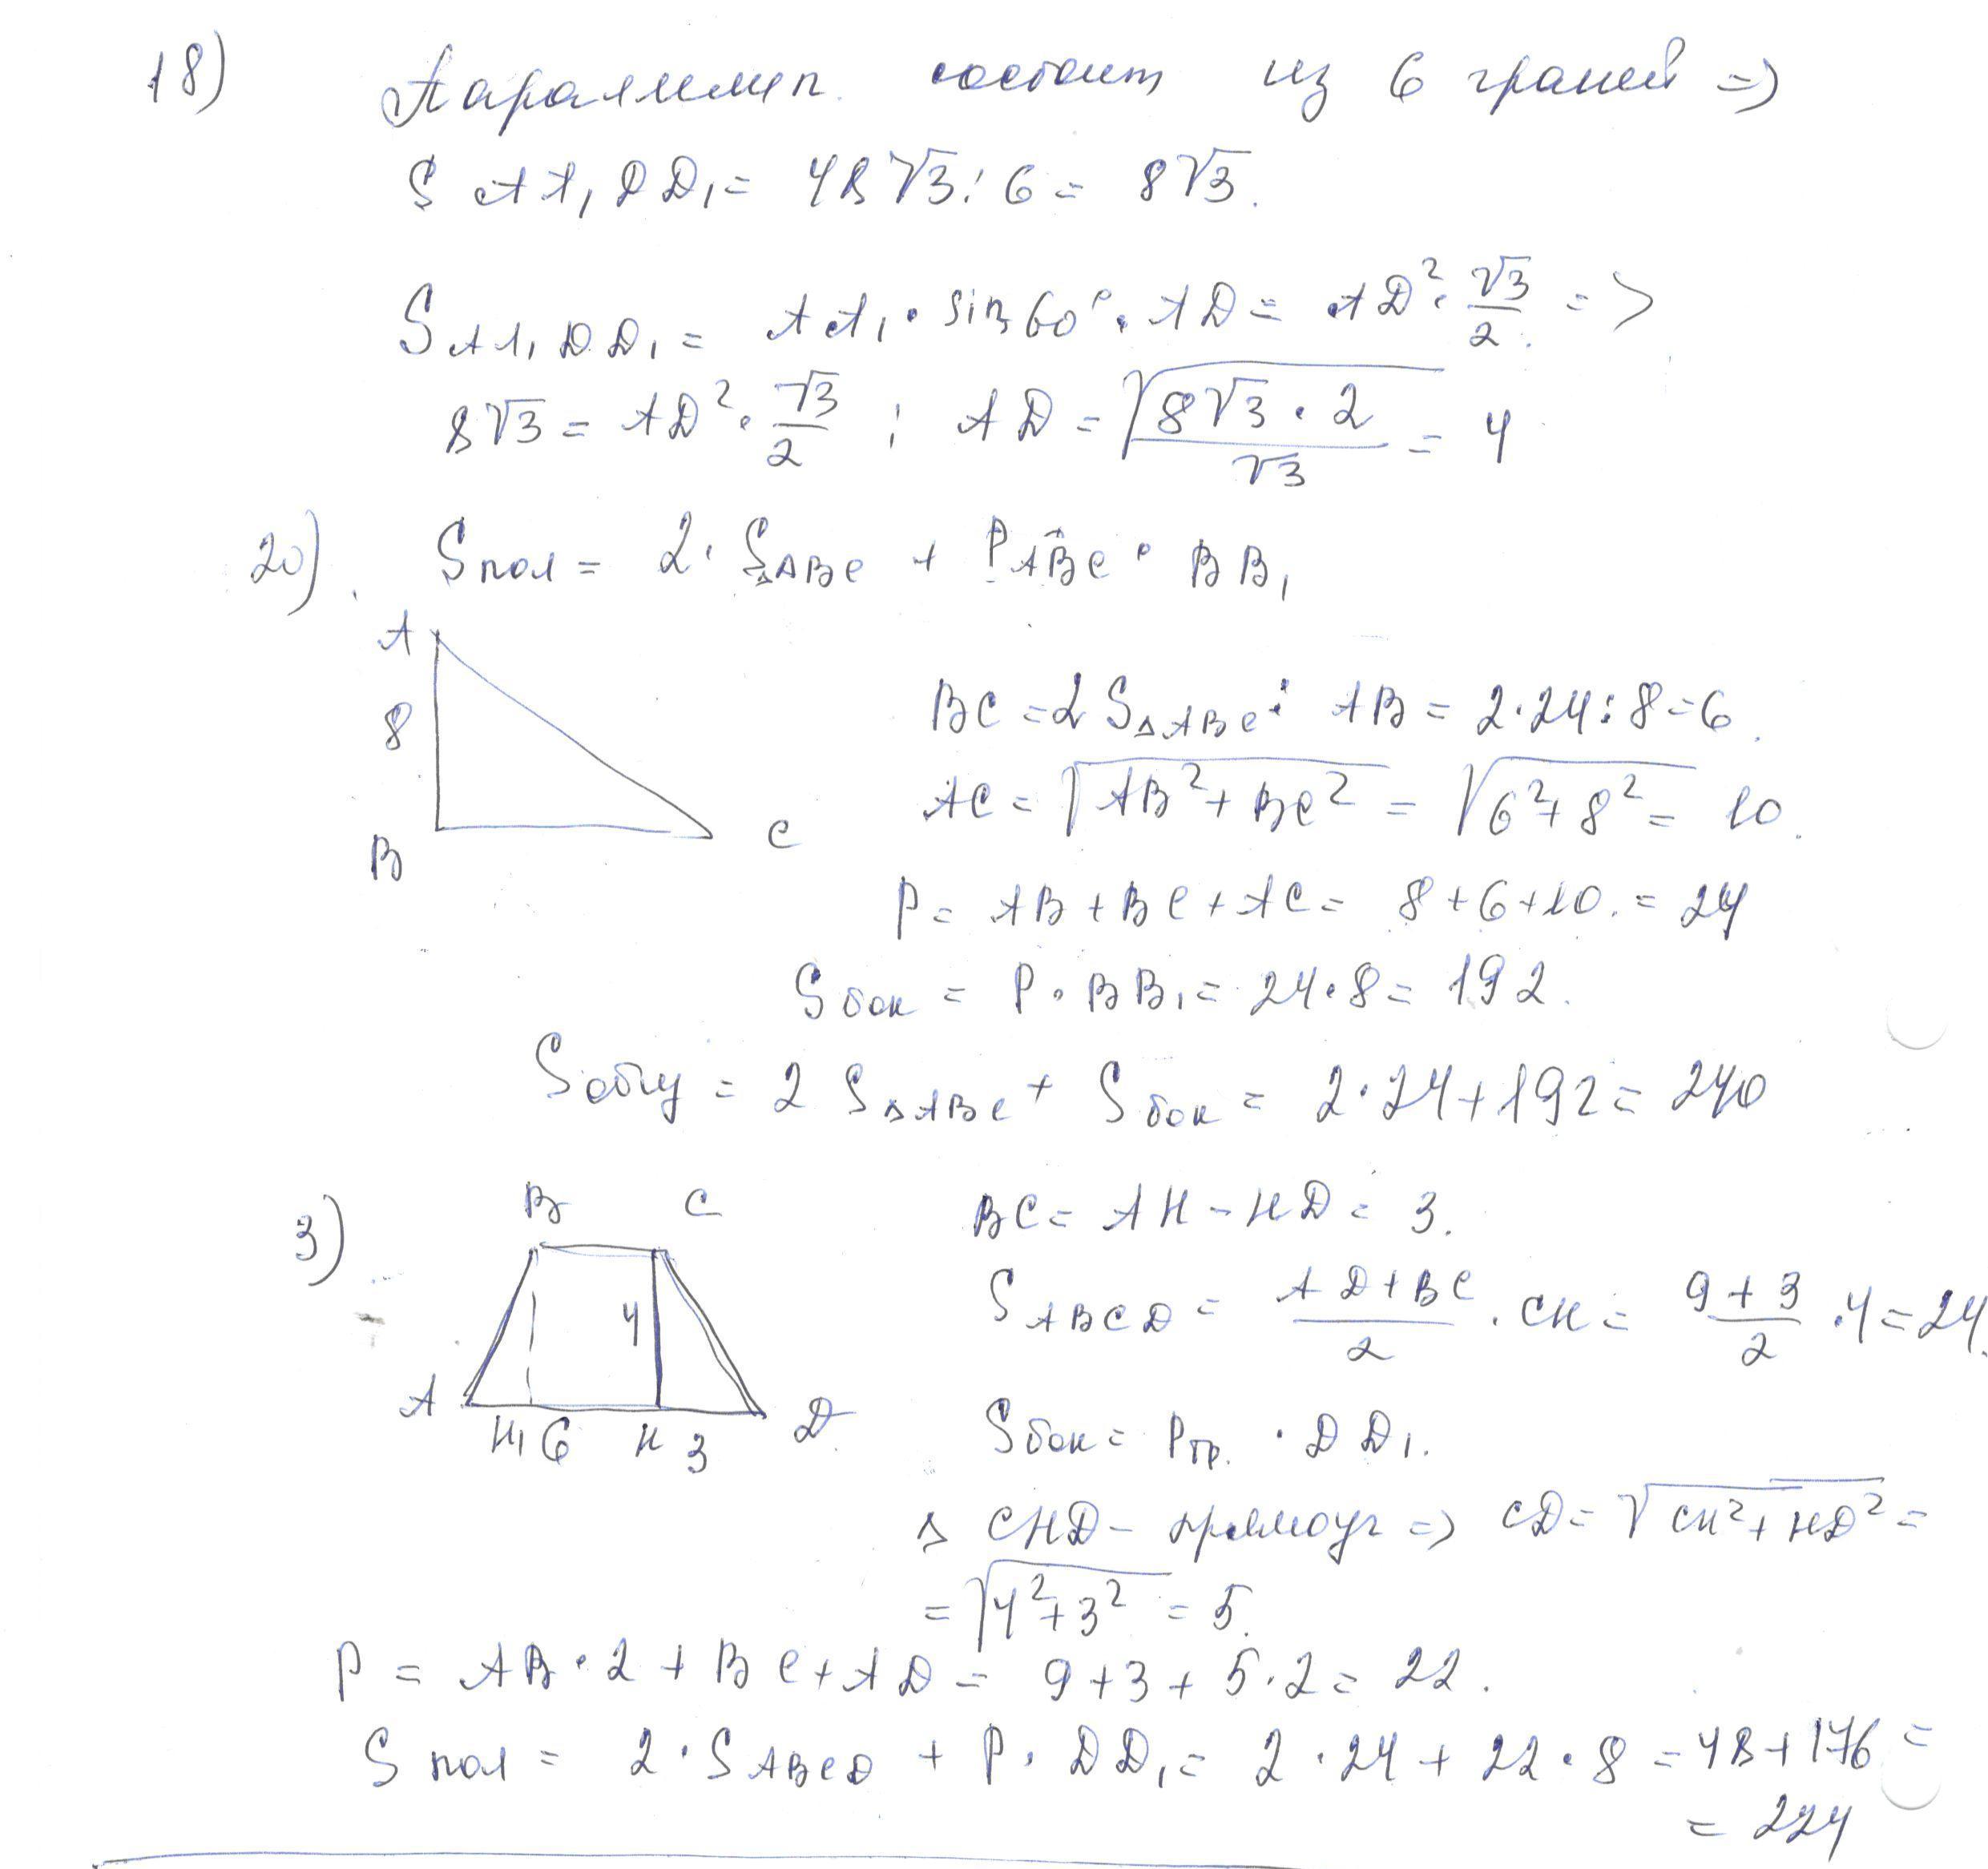 18) Паралелип. состоит из 6 граней =>
S AA₁DD₁ = 48√3 : 6 = 8√3.
S AA₁DD₁ = AA₁ · sin 60° · AD = AD² · √3/2 =>
8√3 = AD² · √3/2 ; AD = √(8√3 · 2/√3) = 4
20). Sпол = 2 · S△ABC + PABC · BB₁
A
8
B
C
BC = 2 S△ABC : AB = 2·24:8 = 6.
AC = √(AB² + BC²) = √(6² + 8²) = 10.
P = AB + BC + AC = 8 + 6 + 10. = 24
Sбок = P · BB₁ = 24 · 8 = 192.
Sобщ = 2 S△ABC + Sбок = 2·24 + 192 = 240
3)
B C
4
A H₁ 6 H 3 D
BC = AH - HD = 3.
SABCD = (AD + BC)/2 · CH = (9 + 3)/2 · 4 = 24.
Sбок = Pтр. · DD₁.
△ CHD - прямоуг => CD = √(CH² + HD²) =
= √(4² + 3²) = 5.
P = AB · 2 + BC + AD = 9 + 3 + 5·2 = 22.
Sпол = 2 · SABCD + P · DD₁ = 2 · 24 + 22 · 8 = 48 + 176 =
= 224